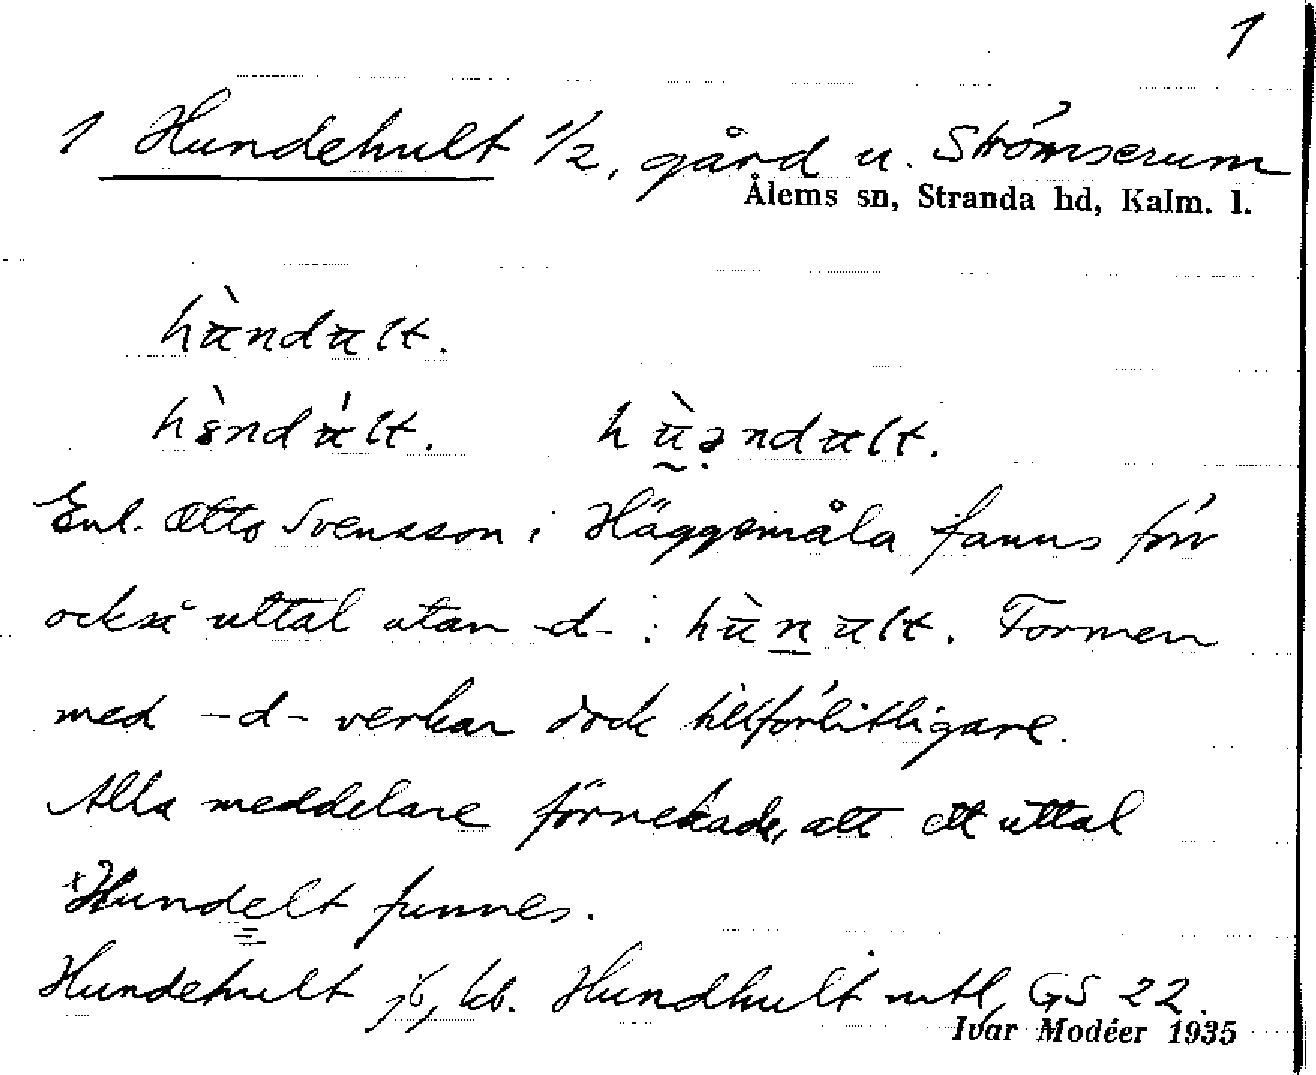 1
1 Hundehult 1/2, gård u. Strömserum
Ålems sn, Stranda hd, Kalm. l.
hùndult.
hùndúlt. hùəndult.
Enl. Otto Svensson i Häggemåla fanns förr
också uttal utan -d- : hùnult. Formen
med -d- verkar dock tillförlitligare.
Alla meddelare förnekade, att ett uttal
*Hundelt funnes.
Hundehult jb, kb. Hundhult mtl, GS 22.
Ivar Modéer 1935